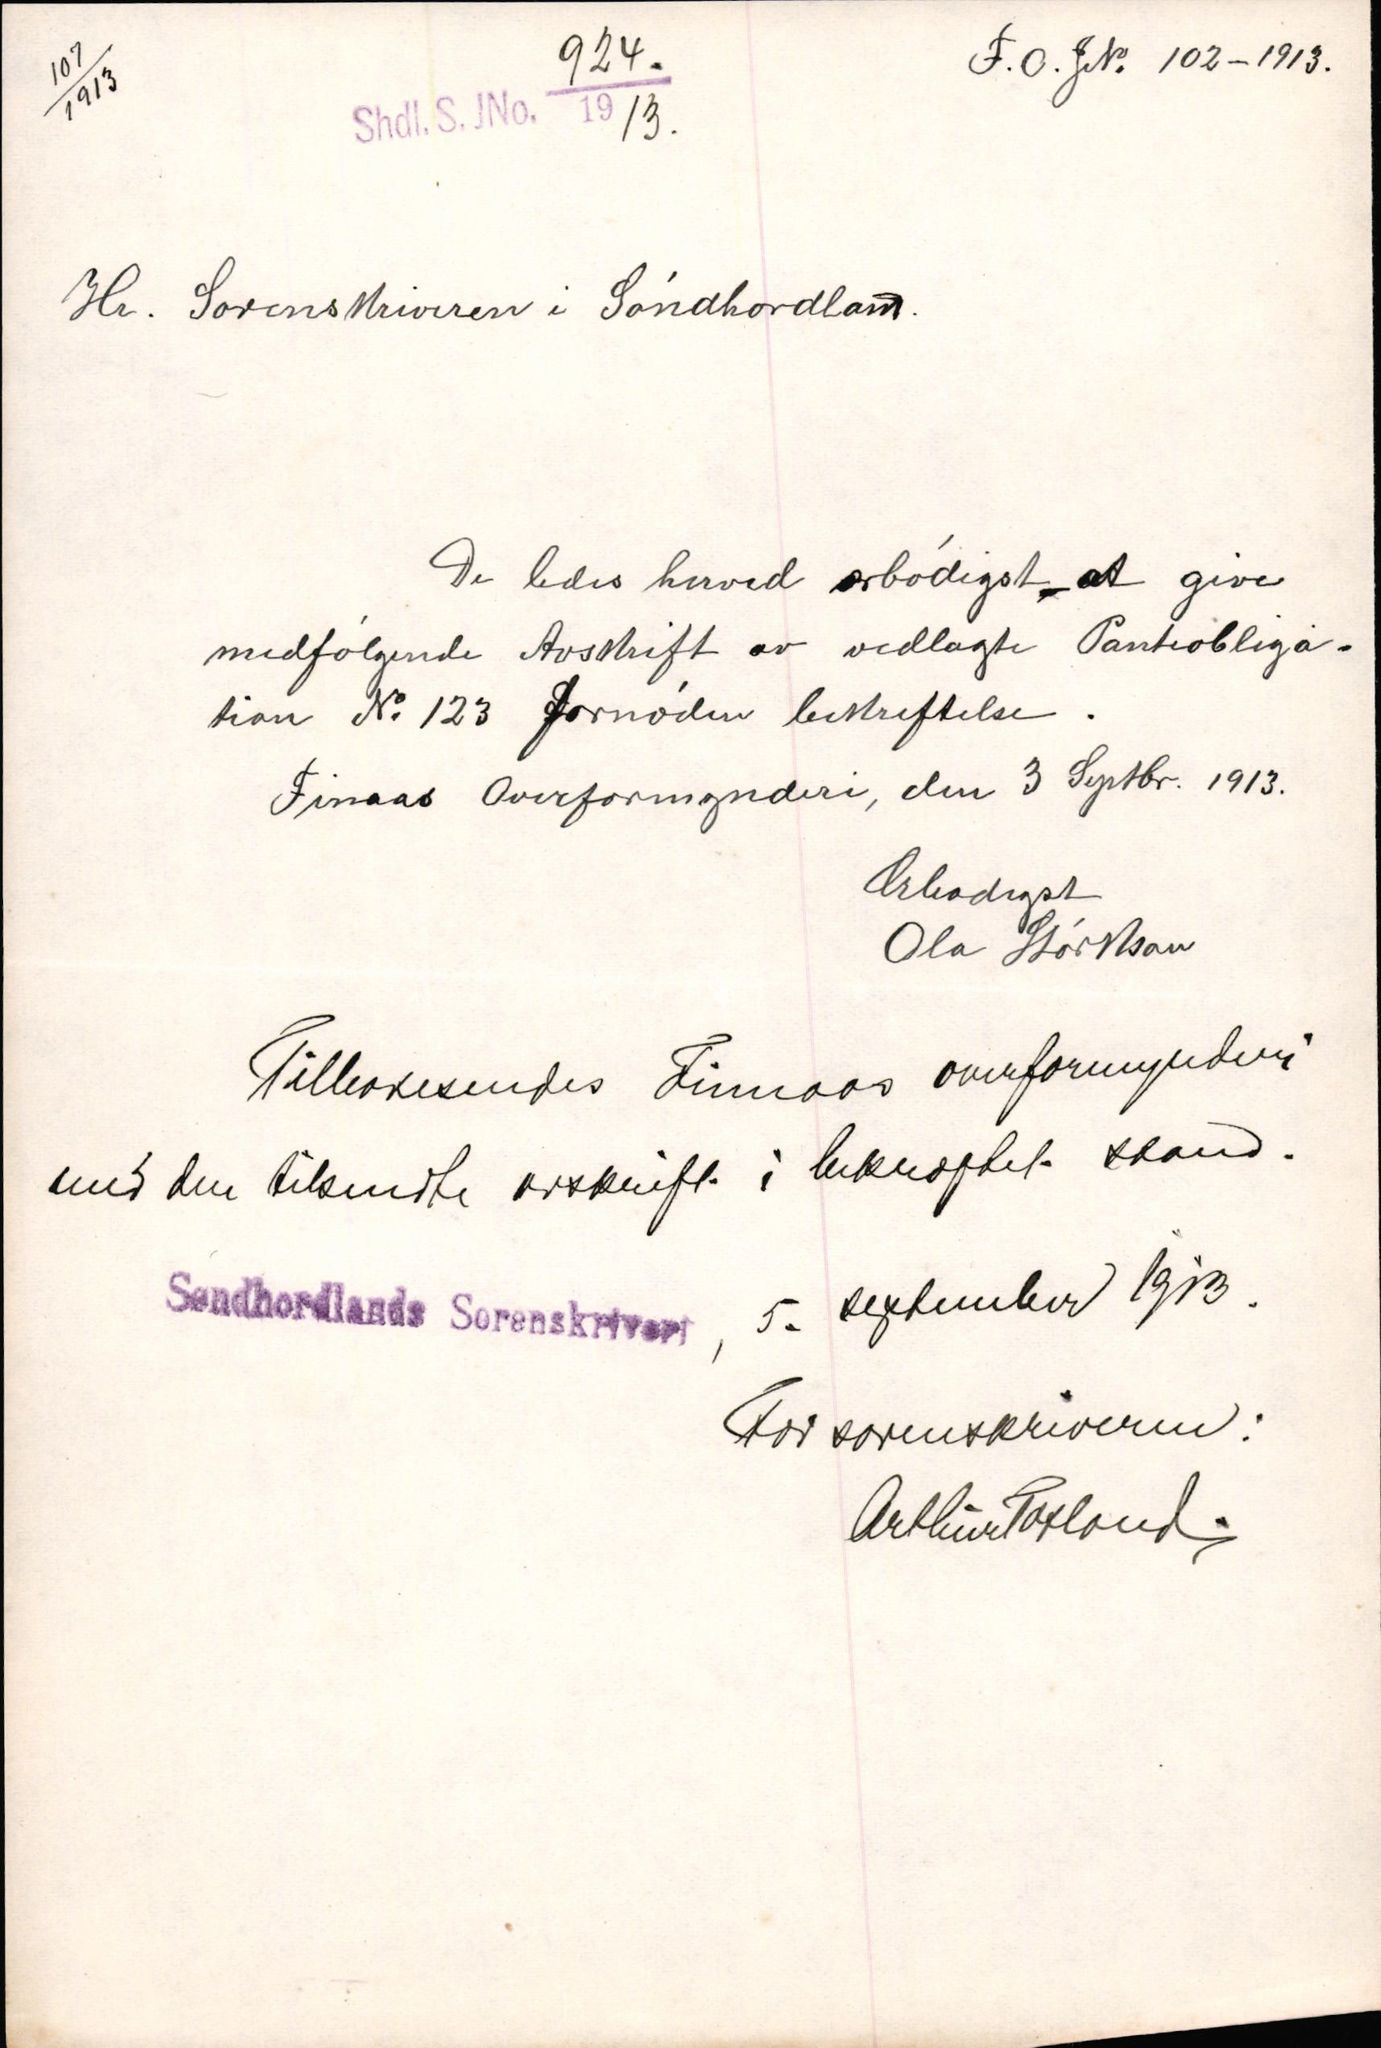 107
1913
Shdl. S. JNo. 924.
19 13.
F. O. J.№. 102-1913.
Hr. Sorenskriveren i Søndhordland.
De bedes herved ærbødigst at give
medfølgende Avskrift av vedlagte Panteobliga-
tion №. 123 fornøden bekræftelse.
Finaas Overformynderi, den 3 Septbr. 1913.
Ærbødigst
Ola Størkson
Tilbakesendes Finnaas overformynderi
med den tilsendte avskrift i bekræftet stand.
Søndhordlands Sorenskriveri, 5. september 1913.
For sorenskriveren:
Arthur